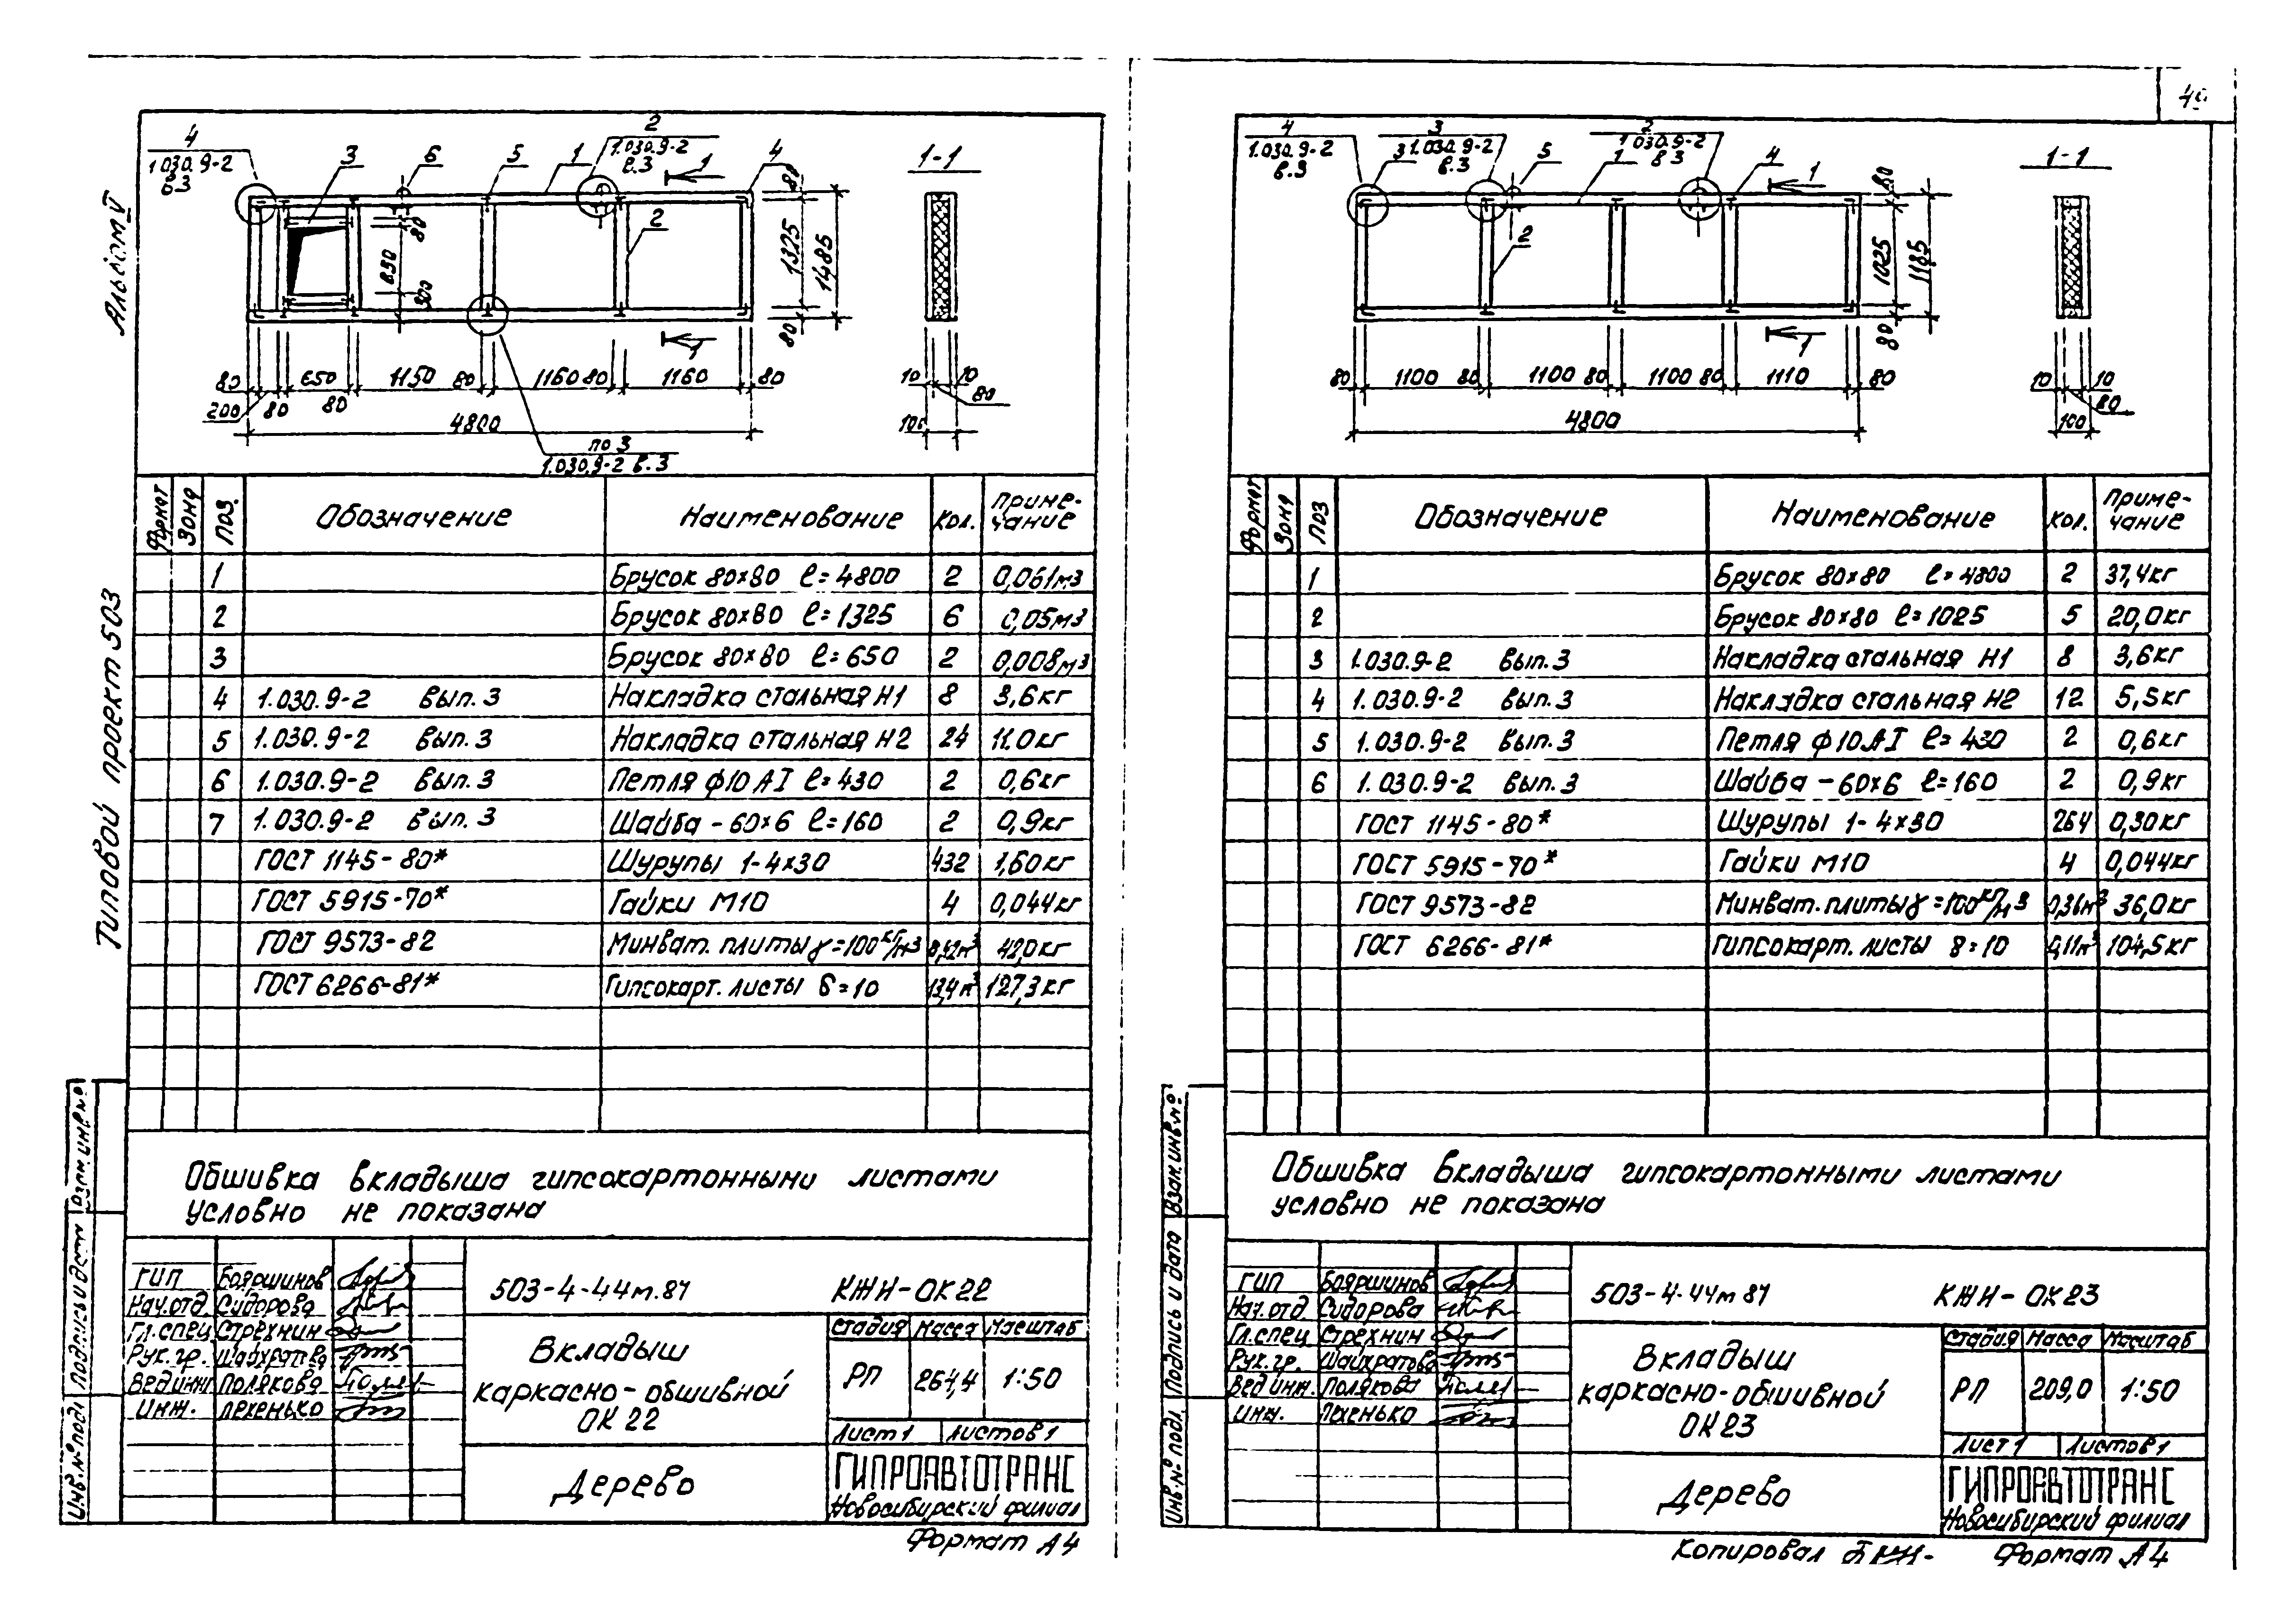 Альбом V
Типовой проект 503
4
1.030.9-2
в.3
3
6
5
1
2
1.030.9-2
в.3
1
4
1-1
2
80
850
300
80
1325
1485
80
1
80
650
1150
80
1160
80
1160
80
200
80
80
4800
по 3
1.030.9-2 в.3
10
10
80
100
Формат
Зона
Поз.
Обозначение
Наименование
Кол.
Приме-
чание
1 Брусок 80×80 ℓ=4800 2 0,061м3
2 Брусок 80×80 ℓ=1325 6 0,05м3
3 Брусок 80×80 ℓ=650 2 0,008м3
4 1.030.9-2 вып.3 Накладка стальная Н1 8 3,6кг
5 1.030.9-2 вып.3 Накладка стальная Н2 24 11,0кг
6 1.030.9-2 вып.3 Петля ф10АI ℓ=430 2 0,6кг
7 1.030.9-2 вып.3 Шайба -60×6 ℓ=160 2 0,9кг
ГОСТ 1145-80* Шурупы 1-4×30 432 1,60кг
ГОСТ 5915-70* Гайки М10 4 0,044кг
ГОСТ 9573-82 Минват. плиты γ=100кг/м3 42,0кг
ГОСТ 6266-81* Гипсокарт. листы δ=10 127,3кг
Обшивка вкладыша гипсокартонными листами
условно не показана
Взам.инв.№
Подпись и дата
Инв.№ подл
ГИП Бояршинов
Нач.отд. Сидорова
Гл.спец Стрехнин
Рук.гр. Шайхратова
Вед.инж Полякова
Инж.
503-4-44м.87 КЖИ-ОК22
Вкладыш
каркасно-обшивной
ОК 22
Стадия Масса Масштаб
РП 264,4 1:50
Лист 1 Листов 1
Дерево
ГИПРОАВТОТРАНС
Новосибирский филиал
Формат А4
4
1.030.9-2
в.3
3
3
1.030.9-2
в.3
5
1
2
1.030.9-2
в.3
4
1
1-1
2
80
1025
1185
80
1
80
1100
80
1100
80
1100
80
1110
80
4800
10
10
80
100
Формат
Зона
Поз
Обозначение
Наименование
Кол.
Приме-
чание
1 Брусок 80×80 ℓ=4800 2 37,4кг
2 Брусок 80×80 ℓ=1025 5 20,0кг
3 1.030.9-2 вып.3 Накладка стальная Н1 8 3,6кг
4 1.030.9-2 вып.3 Накладка стальная Н2 12 5,5кг
5 1.030.9-2 вып.3 Петля ф10АI ℓ=430 2 0,6кг
6 1.030.9-2 вып.3 Шайба -60×6 ℓ=160 2 0,9кг
ГОСТ 1145-80* Шурупы 1-4×30 264 0,30кг
ГОСТ 5915-70* Гайки М10 4 0,044кг
ГОСТ 9573-82 Минват. плиты γ=100кг/м3 0,36м3 36,0кг
ГОСТ 6266-81* Гипсокарт. листы δ=10 104,5кг
Обшивка вкладыша гипсокартонными листами
условно не показана
Взам.инв.№
Подпись и дата
Инв.№ подл.
ГИП Бояршинов
Нач.отд Сидорова
Гл.спец Стрехнин
Рук.гр. Шайхратова
Вед.инж. Полякова
Инж.
503-4-44м 87 КЖИ-ОК23
Вкладыш
каркасно-обшивной
ОК 23
Стадия Масса Масштаб
РП 209,0 1:50
Лист 1 Листов 1
Дерево
ГИПРОАВТОТРАНС
Новосибирский филиал
Копировал Формат А4